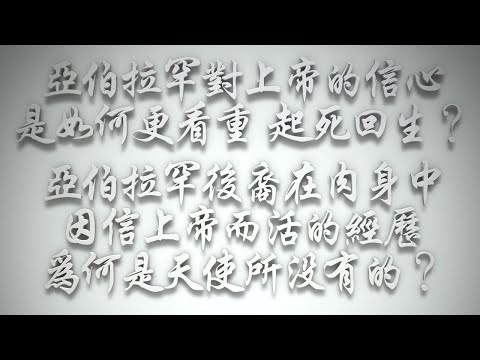 亞伯拉罕對上帝的信心
是如何更看重 起死回生？
亞伯拉罕後裔在肉身中
因信上帝而活的經歷
為何是天使所沒有的？